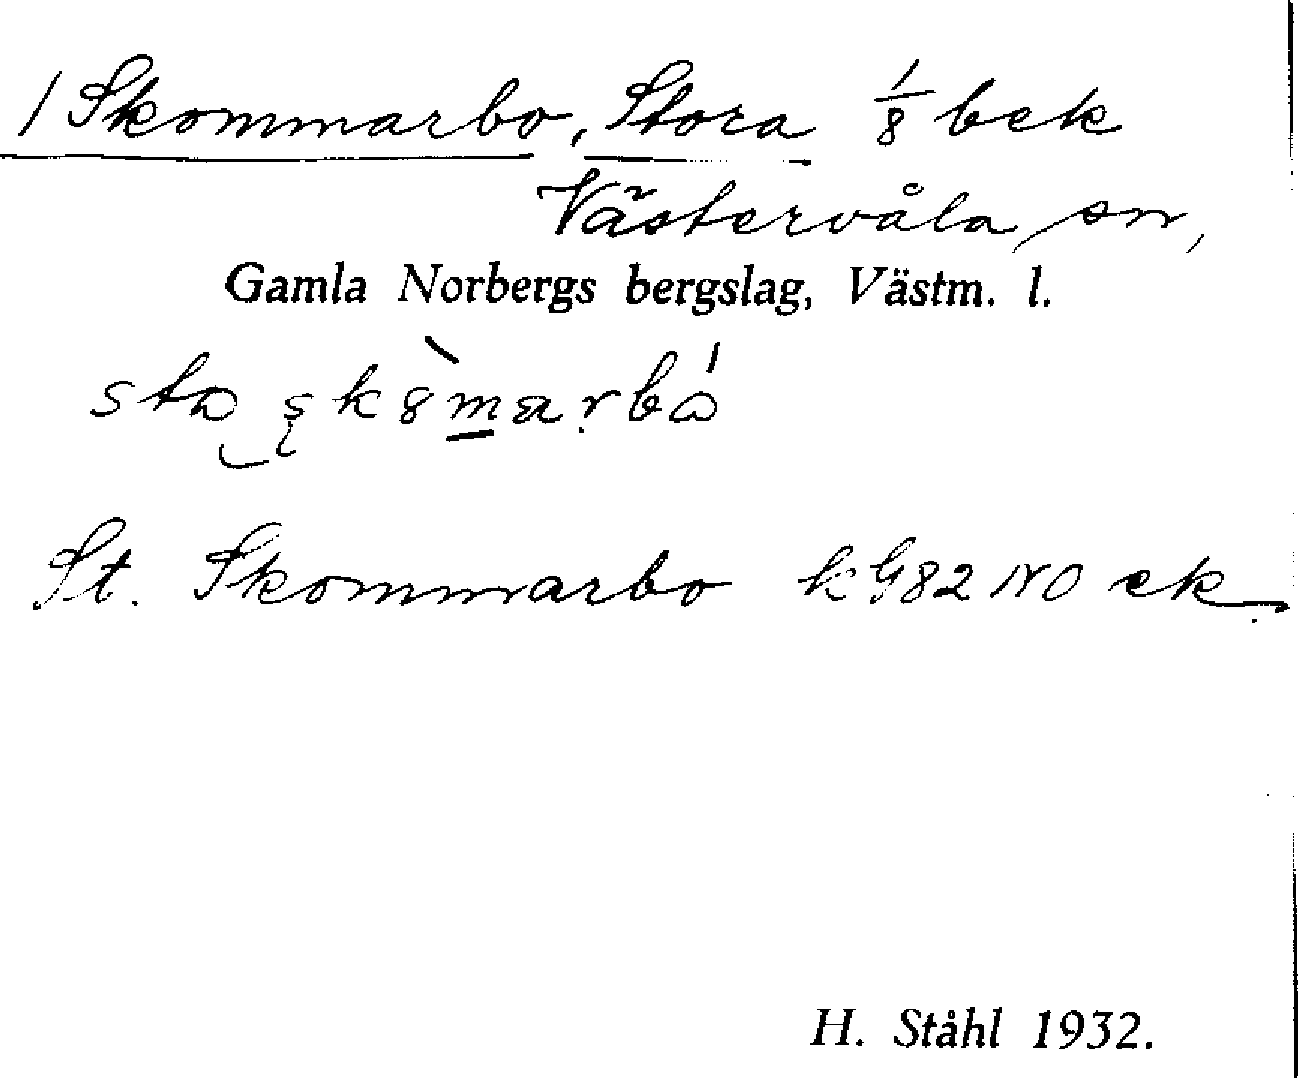 / Skommarbo, Stora 1/8 bek
Västervåla sn,
Gamla Norbergs bergslag, Västm. l.
St. Skommarbo k G82 NO ek.
H. Ståhl 1932.